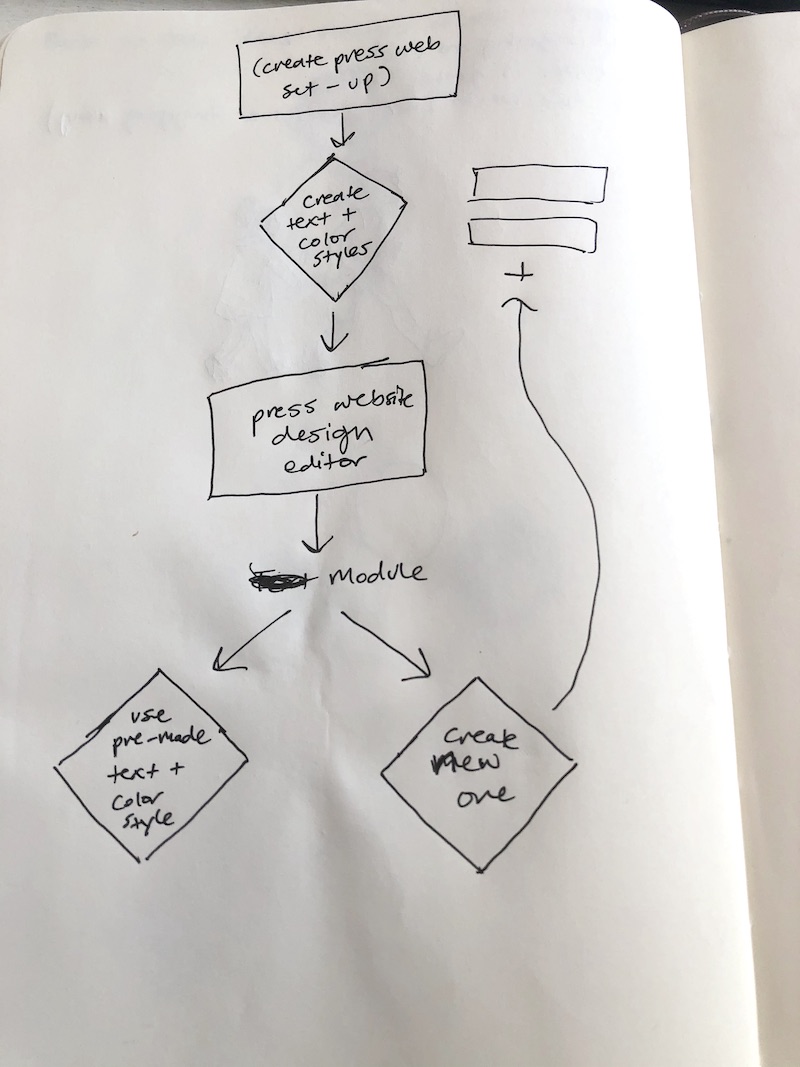 (create press web
set-up)
create
text +
color
styles
+
press website
design
editor
module
use
pre-made
text +
color
style
create
new
one